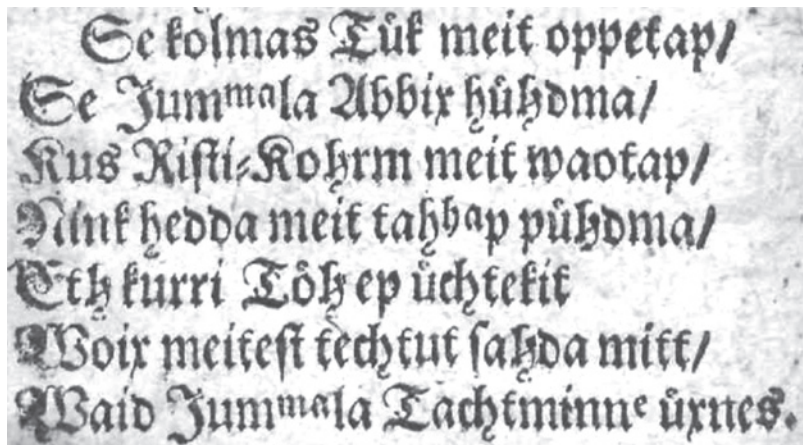 Se kolmas Tük meit oppetap/
Se Jummala Abbix hühdma/
Kus Risti-Kohrm meit waotap/
Nink hedda meit tahhap pühdma/
Eth kurri Töh ep üchtekit
Woix meitest techtut sahda mitt/
Waid Jummala Tachtminne üxnes.